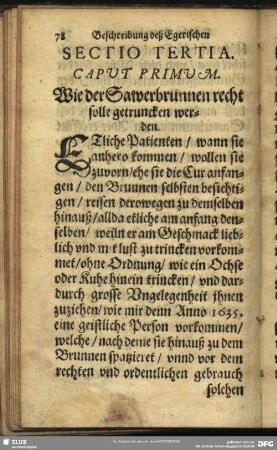 78 Beschreibung deß Egerischen
SECTIO TERTIA.
CAPUT PRIMUM.
Wie der Sawerbrunnen recht
solle getruncken wer-
den.
ETliche Patienten / wann sie
anhero kommen / wollen sie
zuvorn / ehe sie die Cur anfan-
gen / den Brunnen selbsten besichti-
gen / reisen derowegen zu demselben
hinauß / allda etliche am anfang den-
selben / weiln er am Geschmack lieb-
lich vnd mit lust zu trincken vorkom-
met / ohne Ordnung / wie ein Ochse
oder Kuhe hinein trincken / vnd dar-
durch grosse Vngelegenheit ihnen
zuziehen / wie mir denn Anno 1635.
eine geistliche Person vorkommen /
welche / nach deme sie hinauß zu dem
Brunnen spatzieret / vnnd vor dem
rechten vnd ordentlichen gebrauch
solchen
SLUB
DFG